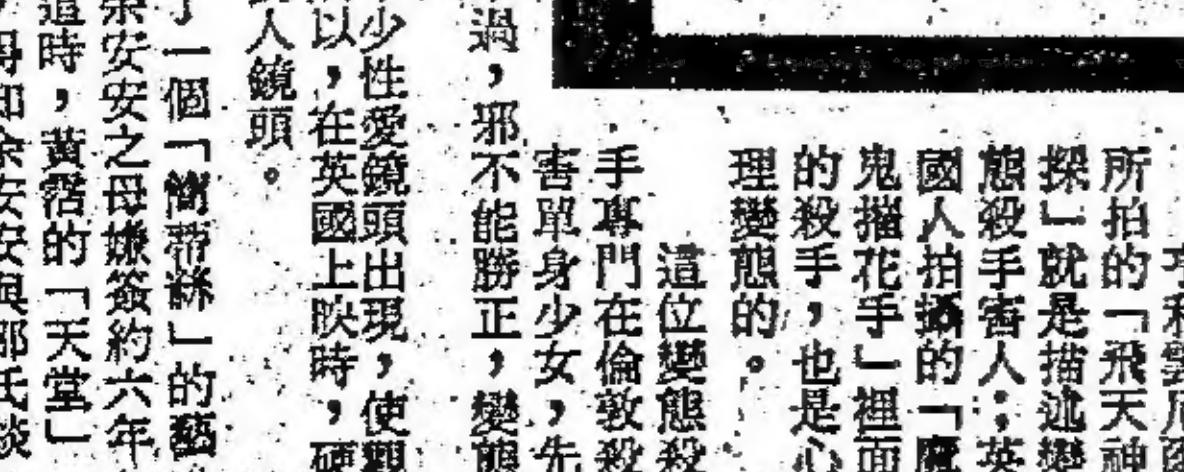 所拍的「飛天神
探」就是描述變
態殺手害人；英
國人拍攝的「魔
鬼摧花手」裡面
的殺手，也是心
理變態的。
這位變態殺
手專門在倫敦殺
害單身少女，先
過，邪不能勝正，變態
少性愛鏡頭出現，使觀
以，在英國上映時，硬
人鏡頭。
了一個「簡帶綠」的藝
余安安之母嫌簽約六年
這時，黃霑的「天堂」
得知余安安與邵氏談